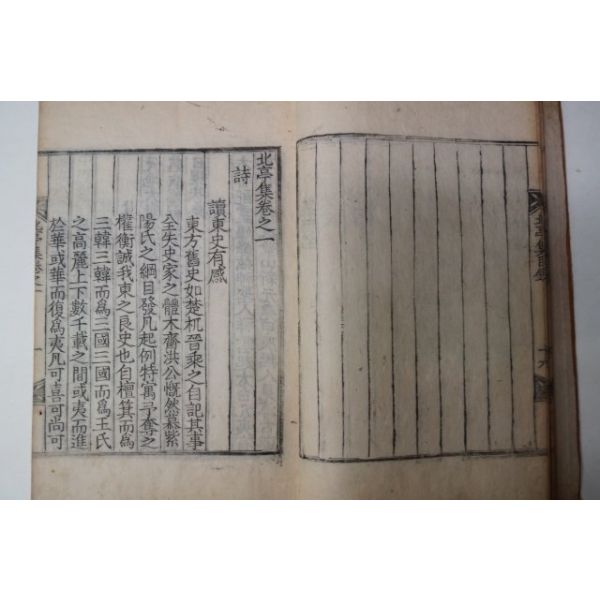 北亭集目錄
十八
北亭集卷之一
詩
讀東史有感
東方舊史如楚杌晉乘之自記其事
全失史家之體木齋洪公慨然慕紫
陽氏之綱目發凡起例特寓予奪之
權衡誠我東之良史也自檀箕而爲
三韓三韓而爲三國三國而爲王氏
之高麗上下數千載之間或夷而進
於華或華而復爲夷凡可喜可尚可
北亭集卷之一
一